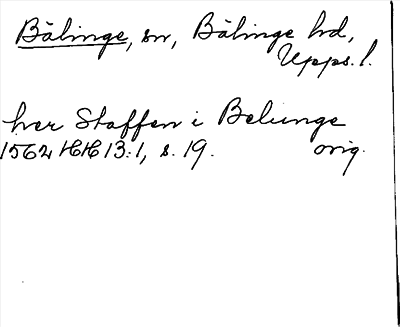 Bälinge, sn, Bälinge hd,
Upps. l.
her Staffen i Belunge
1562 HH 13:1, s. 19. orig.